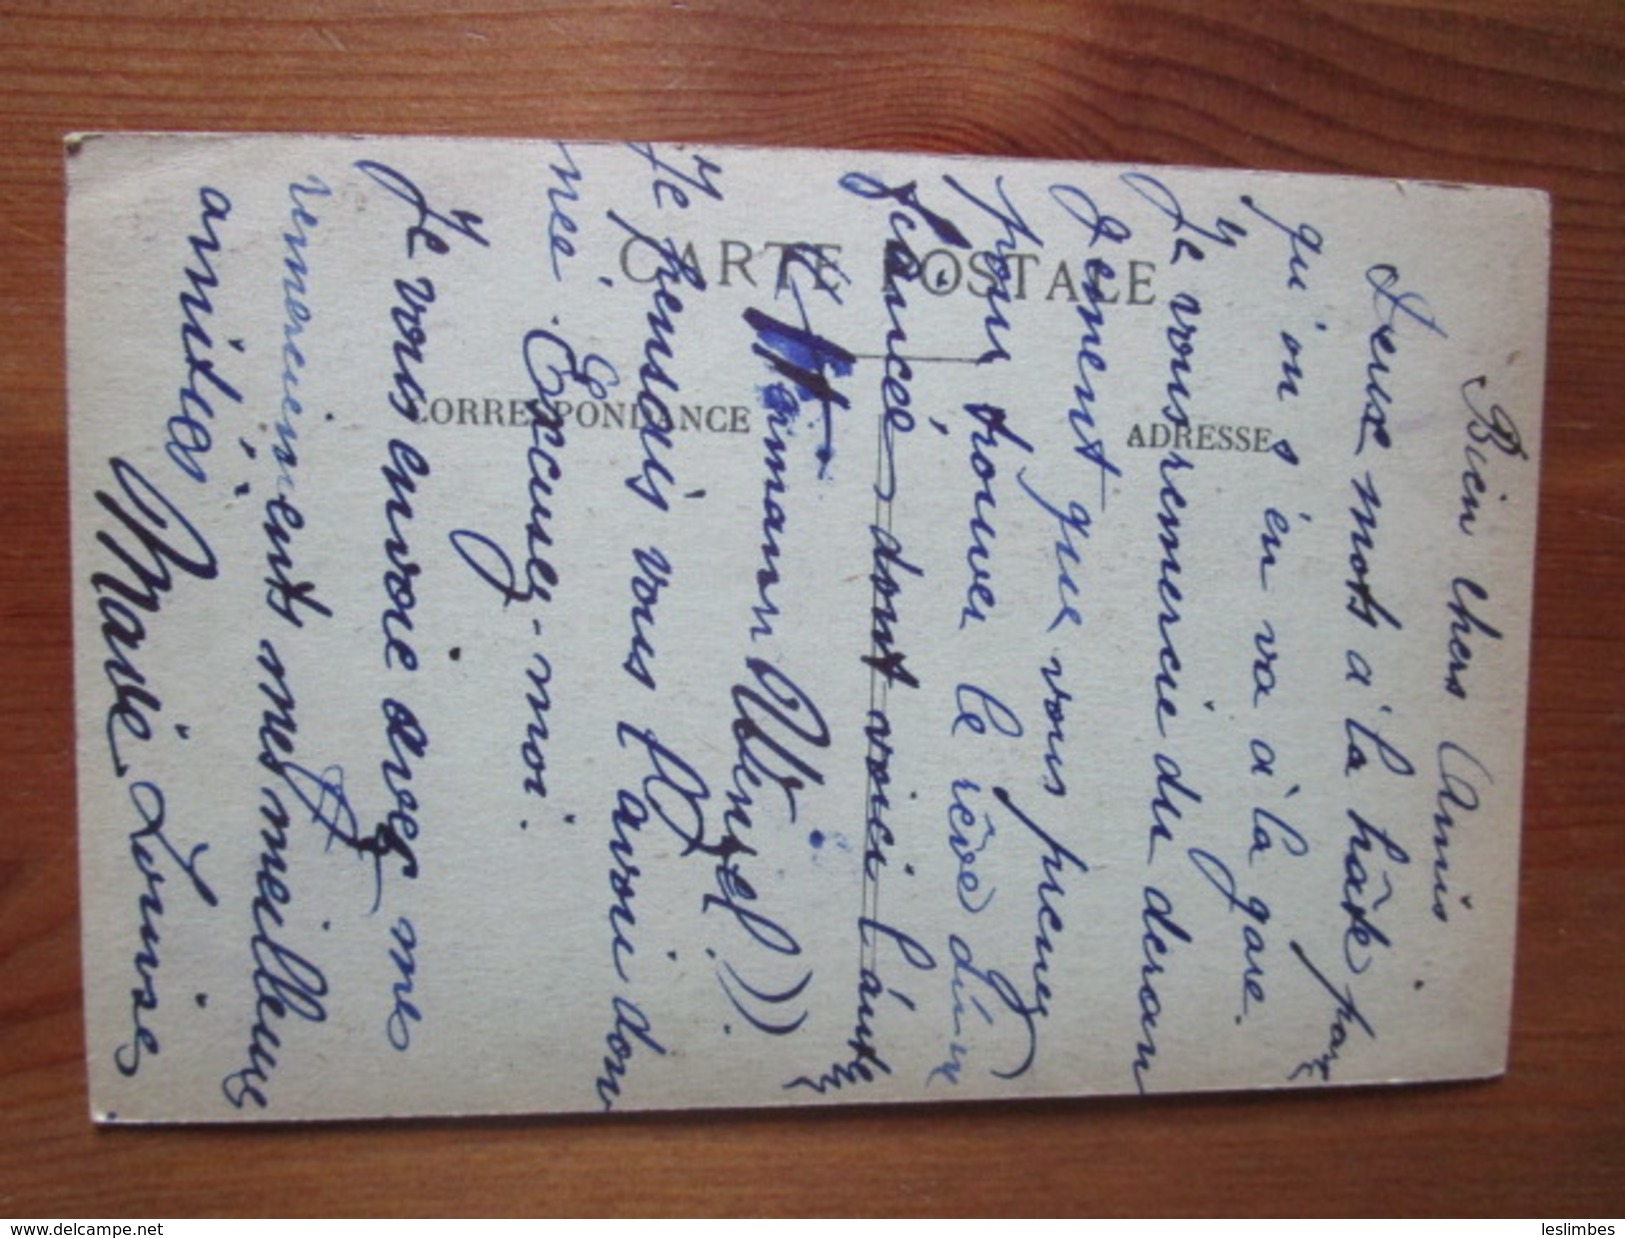 Bien chers Amis
Deux mots à la hâte parce
qu'on s'en va à la gare.
Je vous remercie du déran
gement que vous prenez
pour trouver le rêve d'une
fiancée, dont voici l'auteur
Hermann Wenzel)).
Je pensais vous l'avoir don
né. Excusez-moi.
Je vous envoie avec mes
remerciements mes meilleures
amitiés
Marie Louise
CARTE POSTALE
CORRESPONDANCE
ADRESSE
www.delcampe.net
leslimbes